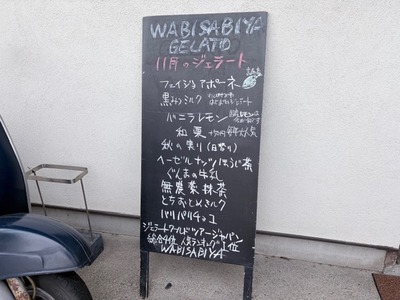 WABISABIYA
GELATO
11月のジェラート
フェイジョアボーネ
黒みつミルク
バニラレモン
和栗
秋の実り(日替り)
ヘーゼルナッツほうじ茶
ぐんまの牛乳
無農薬抹茶
とちおとめミルク
パリパリチョコ
ジェラートワールドツアージャパン
総合4位 人気ランキング1位
WABISABIYA